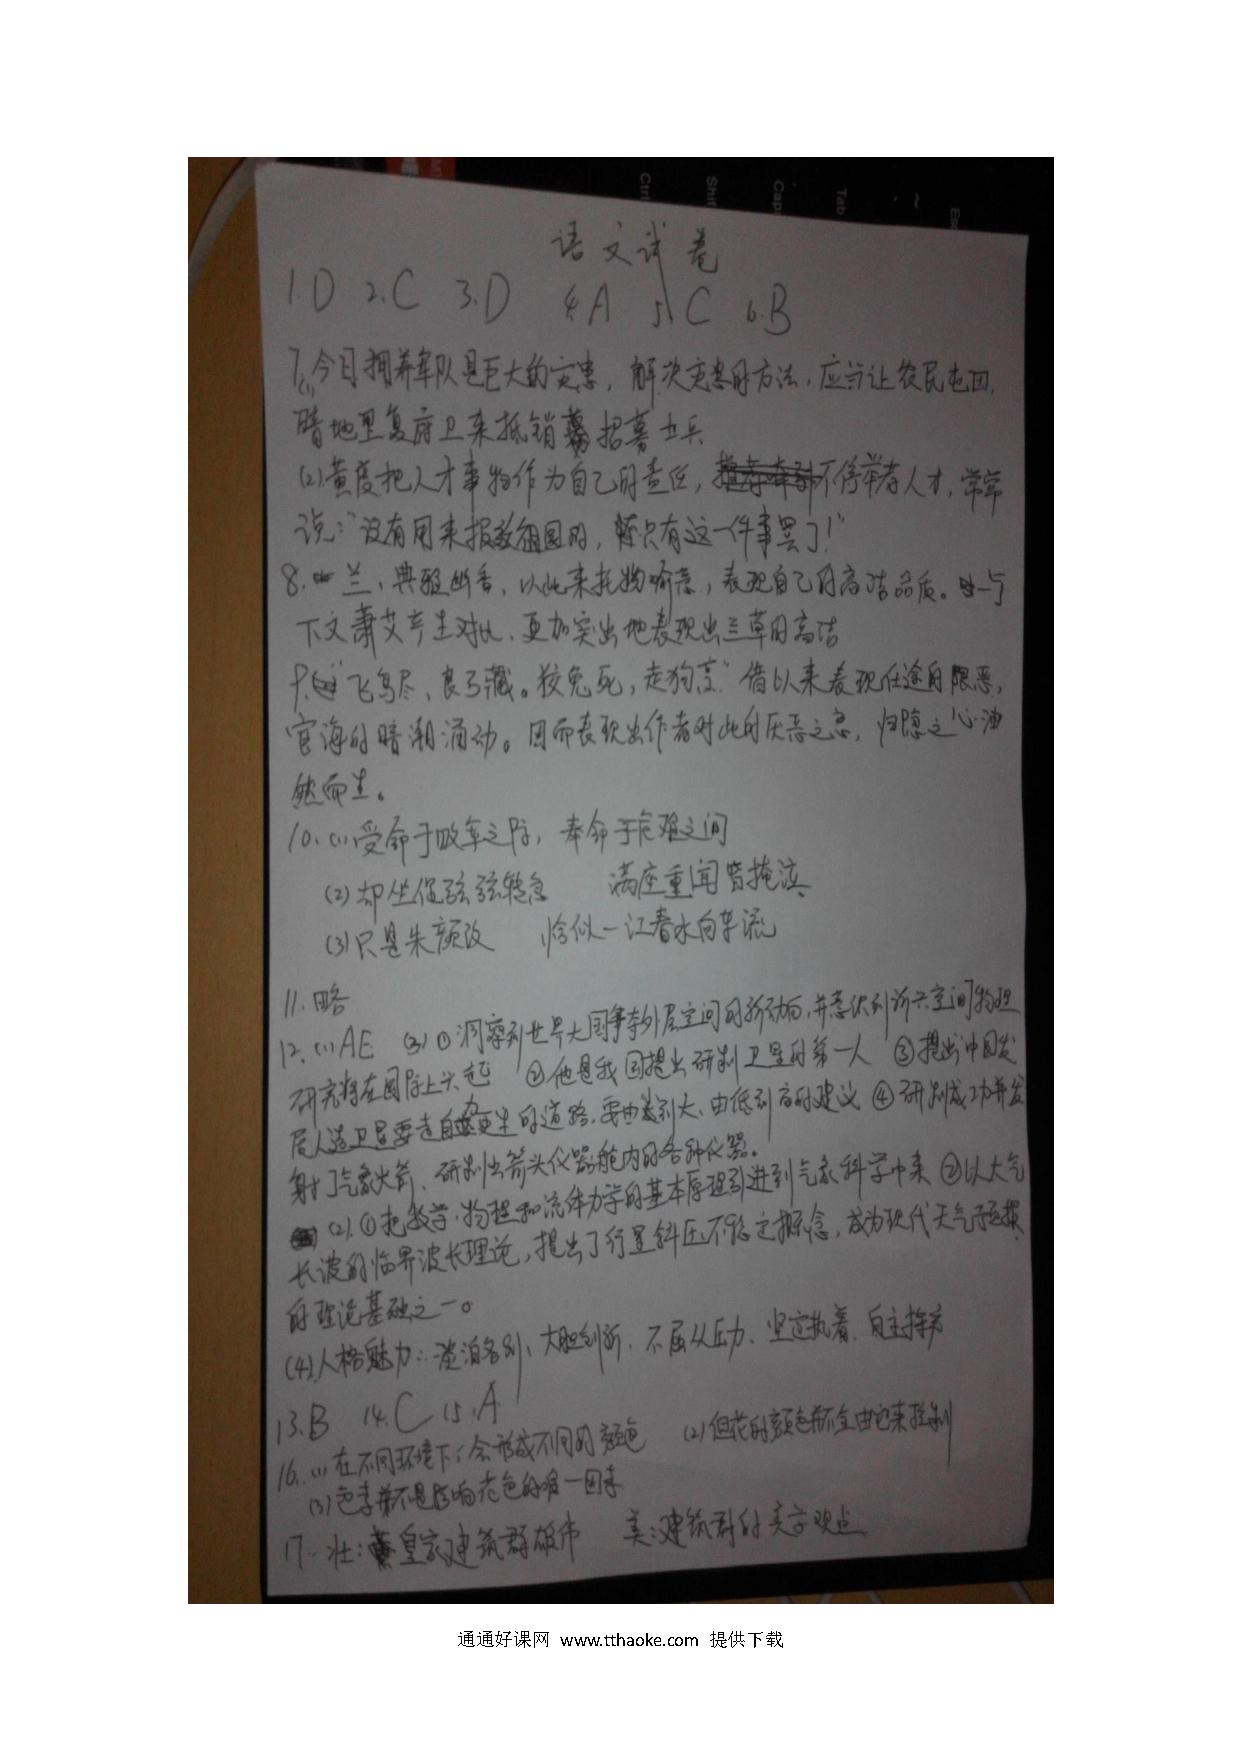 Ctrl Shift Cap Tab ~
语文试卷
1.D 2.C 3.D 4.A 5.C 6.B
7.(1)今日拥养军队是巨大的灾患，解决灾患的方法，应当让农民屯田，
暗地里复府卫来抵销招募士兵
(2)黄度把人才事物作为自己的责任，不停举荐人才，常常
说：“没有用来报效祖国的，只有这一件事罢了！”
8.兰，典雅幽香，以此来托物喻意，表现自己的高洁品质。与
下文萧艾产生对比，更加突出地表现出兰草的高洁
9.“飞鸟尽，良弓藏。狡兔死，走狗烹”借以来表现仕途的险恶，
官海的暗潮涌动。因而表现出作者对此的厌恶之意，归隐之心油
然而生。
10.(1)受命于败军之际，奉命于危难之间
(2)却坐促弦弦转急 满座重闻皆掩泣
(3)只是朱颜改 恰似一江春水向东流
11.略
12.(1)AE (3)①洞察到世界大国争夺外层空间的新动向，并意识到新兴空间物理
研究将在国际上兴起 ②他是我国提出研制卫星的第一人 ③提出中国发
展人造卫星要走自力更生的道路，要由小到大、由低到高的建议 ④研制成功并发
射了气象火箭，研制出箭头仪器舱内的各种仪器。
(2).①把数学、物理和流体力学的基本原理引进到气象科学中来 ②以大气
长波的临界波长理论，提出了行星斜压不稳定概念，成为现代天气预报
的理论基础之一。
(4)人格魅力：淡泊名利、大胆创新、不屈从压力、坚定执着、自主探索
13.B 14.C 15.A
16.(1)在不同环境下，会形成不同的颜色 (2)但花的颜色并不全由它来控制
(3)色素并不是影响花色的唯一因素
17.壮：皇家建筑群雄伟 美：建筑群的美学观点
通通好课网 www.tthaoke.com 提供下载